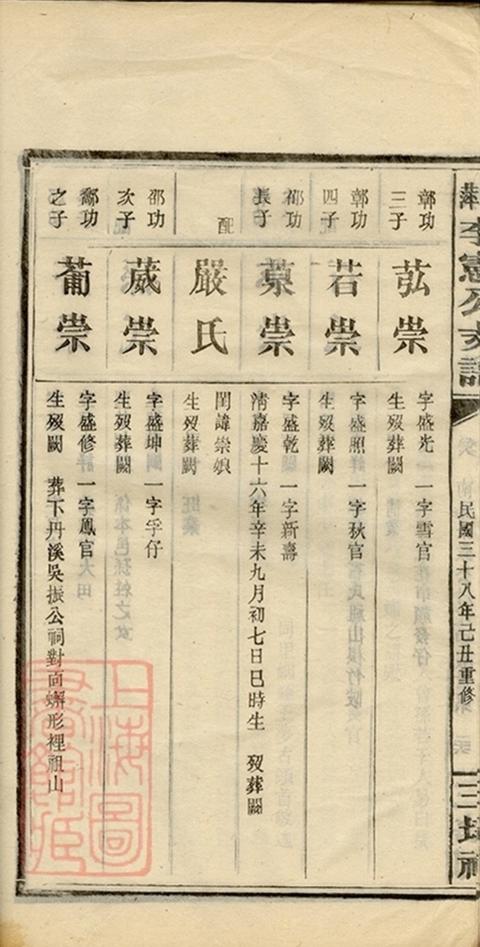 李憲公支譜
民國三十八年己丑重修
三
鄣功
三子
苰崇
字盛光 一字雪官
生歿葬闕
鄣功
四子
若崇
字盛照 一字狄官
生歿葬闕
邵功
長子
崇
字盛乾 一字新壽
清嘉慶十六年辛未九月初七日巳時生 歿葬闕
配
嚴氏
閨諱崇娘
生歿葬闕
邵功
次子
葳崇
字盛坤 一字孚仔
生歿葬闕
功
之子
蔔崇
字盛修 一字鳳官
生歿闕 葬下丹溪吳振公祠對面蠏形裡祖山
上海圖
書館藏